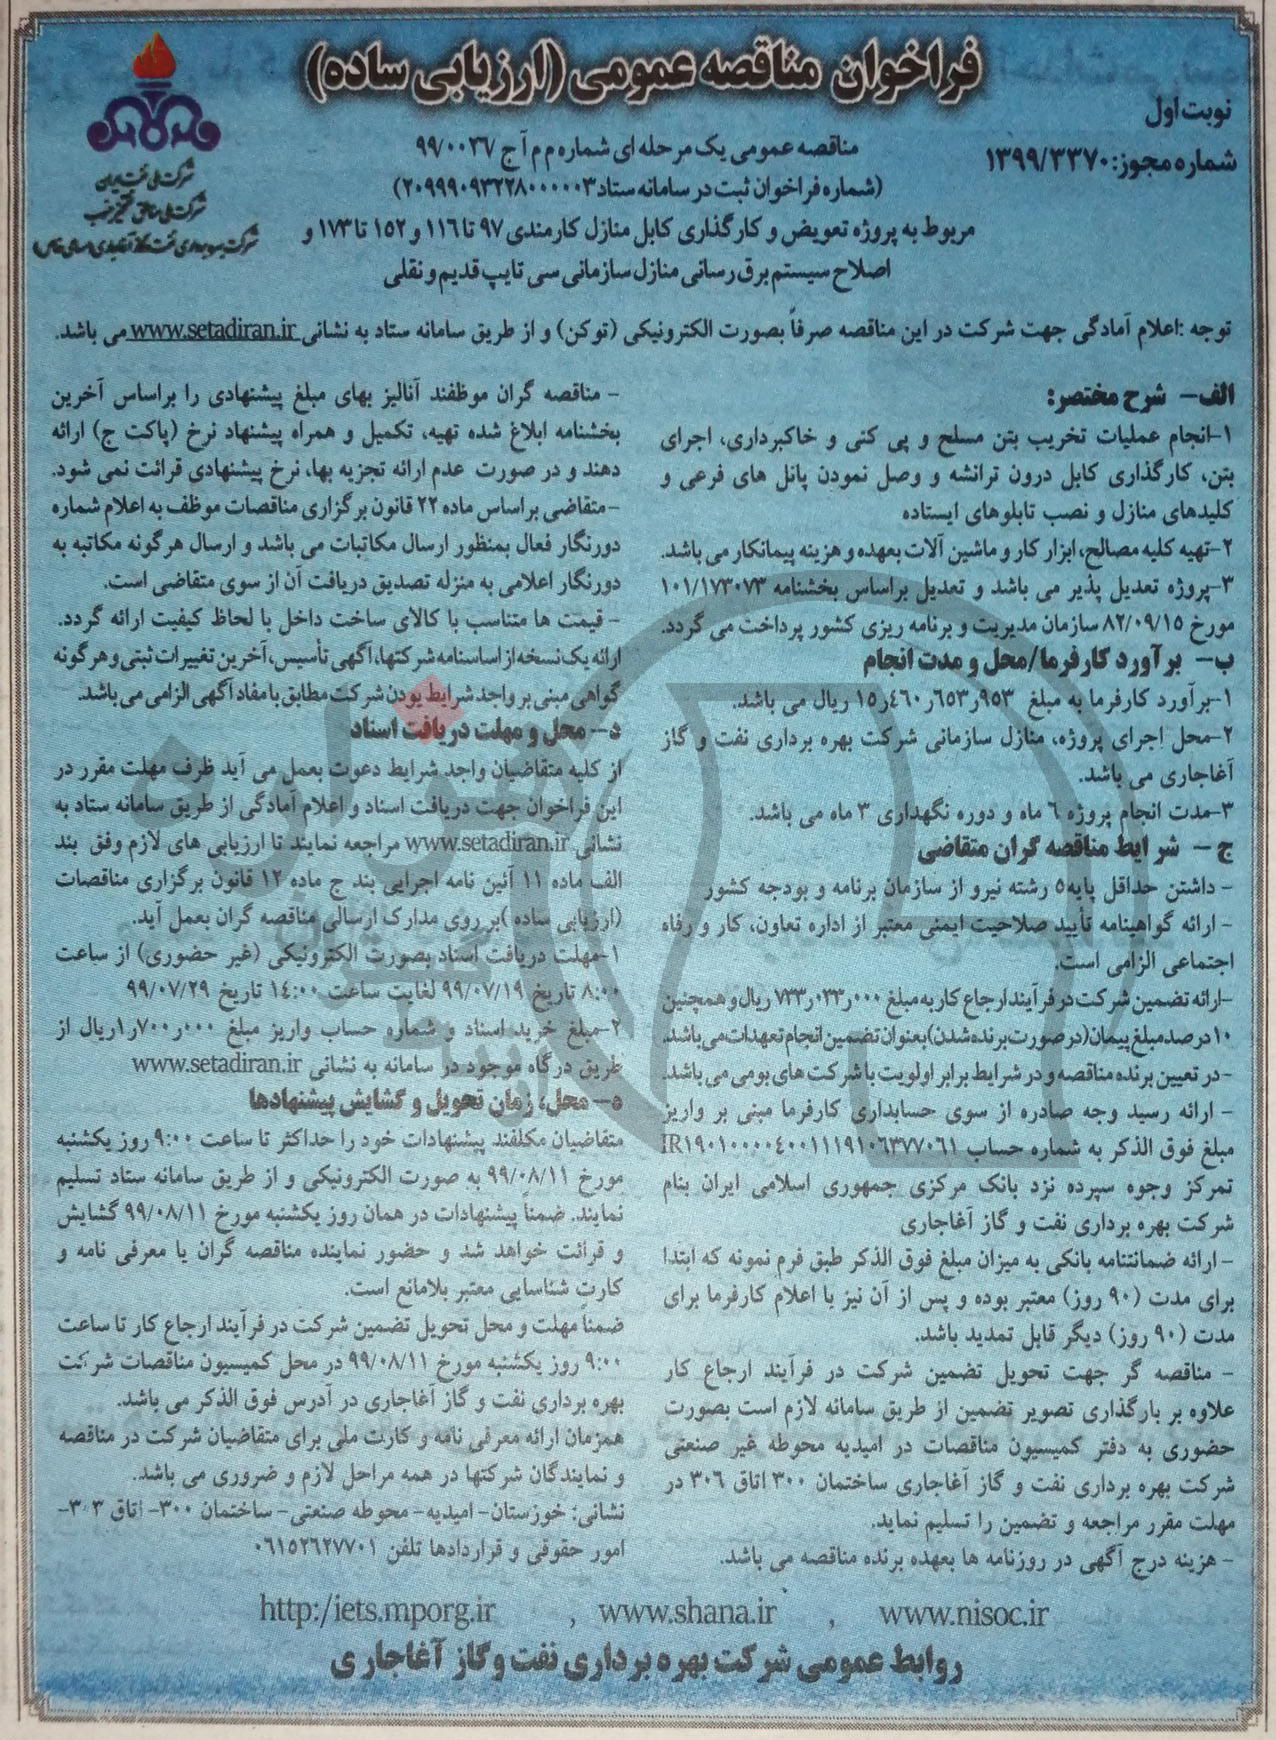 فراخوان مناقصه عمومی (ارزیابی ساده)
نوبت اول
شماره مجوز: ۱۳۹۹/۳۳۷۰
مناقصه عمومی یک مرحله ای شماره م م آ ج ۹۹/۰۰۳۷
(شماره فراخوان ثبت در سامانه ستاد ۲۰۹۹۹۰۹۳۲۲۸۰۰۰۰۰۳)
مربوط به پروژه تعویض و کارگذاری کابل منازل کارمندی ۹۷ تا ۱۱۶ و ۱۵۲ تا ۱۷۳ و
اصلاح سیستم برق رسانی منازل سازمانی سی تایپ قدیم و نقلی
شرکت ملی نفت ایران
شرکت ملی مناطق نفتخیز جنوب
شرکت بهره برداری نفت و گاز آغاجاری (سهامی خاص)
توجه :اعلام آمادگی جهت شرکت در این مناقصه صرفاً بصورت الکترونیکی (توکن) و از طریق سامانه ستاد به نشانی www.setadiran.ir می باشد.
الف– شرح مختصر:
۱–انجام عملیات تخریب بتن مسلح و پی کنی و خاکبرداری، اجرای
بتن، کارگذاری کابل درون ترانشه و وصل نمودن پانل های فرعی و
کلیدهای منازل و نصب تابلوهای ایستاده
۲–تهیه کلیه مصالح، ابزار کار و ماشین آلات بعهده و هزینه پیمانکار می باشد.
۳–پروژه تعدیل پذیر می باشد و تعدیل براساس بخشنامه ۱۰۱/۱۷۳۰۷۳
مورخ ۸۲/۰۹/۱۵ سازمان مدیریت و برنامه ریزی کشور پرداخت می گردد.
ب– برآورد کارفرما/محل و مدت انجام
۱–برآورد کارفرما به مبلغ ۱۵٫۴۶۰٫۶۵۳٫۹۵۳ ریال می باشد.
۲–محل اجرای پروژه، منازل سازمانی شرکت بهره برداری نفت و گاز
آغاجاری می باشد.
۳–مدت انجام پروژه ۶ ماه و دوره نگهداری ۳ ماه می باشد.
ج – شرایط مناقصه گران متقاضی
– داشتن حداقل پایه۵ رشته نیرو از سازمان برنامه و بودجه کشور
– ارائه گواهینامه تأیید صلاحیت ایمنی معتبر از اداره تعاون، کار و رفاه
اجتماعی الزامی است.
–ارائه تضمین شرکت در فرآیند ارجاع کار به مبلغ ۷۳۳٫۰۳۳٫۰۰۰ ریال و همچنین
۱۰ درصد مبلغ پیمان (در صورت برنده شدن) بعنوان تضمین انجام تعهدات می باشد.
–در تعیین برنده مناقصه و در شرایط برابر اولویت با شرکت های بومی می باشد.
– ارائه رسید وجه صادره از سوی حسابداری کارفرما مبنی بر واریز
مبلغ فوق الذکر به شماره حساب IR۱۹۰۱۰۰۰۰۴۰۰۱۱۱۹۱۰۶۳۷۷۰۶۱
تمرکز وجوه سپرده نزد بانک مرکزی جمهوری اسلامی ایران بنام
شرکت بهره برداری نفت و گاز آغاجاری
– ارائه ضمانتنامه بانکی به میزان مبلغ فوق الذکر طبق فرم نمونه که ابتدا
برای مدت (۹۰ روز) معتبر بوده و پس از آن نیز با اعلام کارفرما برای
مدت (۹۰ روز) دیگر قابل تمدید باشد.
– مناقصه گر جهت تحویل تضمین شرکت در فرآیند ارجاع کار
علاوه بر بارگذاری تصویر تضمین از طریق سامانه لازم است بصورت
حضوری به دفتر کمیسیون مناقصات در امیدیه محوطه غیر صنعتی
شرکت بهره برداری نفت و گاز آغاجاری ساختمان ۳۰۰ اتاق ۳۰۶ در
مهلت مقرر مراجعه و تضمین را تسلیم نماید.
– هزینه درج آگهی در روزنامه ها بعهده برنده مناقصه می باشد.
– مناقصه گران موظفند آنالیز بهای مبلغ پیشنهادی را براساس آخرین
بخشنامه ابلاغ شده تهیه، تکمیل و همراه پیشنهاد نرخ (پاکت ج) ارائه
دهند و در صورت عدم ارائه تجزیه بها، نرخ پیشنهادی قرائت نمی شود.
–متقاضی براساس ماده ۲۲ قانون برگزاری مناقصات موظف به اعلام شماره
دورنگار فعال بمنظور ارسال مکاتبات می باشد و ارسال هرگونه مکاتبه به
دورنگار اعلامی به منزله تصدیق دریافت آن از سوی متقاضی است.
– قیمت ها متناسب با کالای ساخت داخل با لحاظ کیفیت ارائه گردد.
ارائه یک نسخه از اساسنامه شرکتها، آگهی تأسیس، آخرین تغییرات ثبتی و هرگونه
گواهی مبنی بر واجد شرایط بودن شرکت مطابق با مفاد آگهی الزامی می باشد.
د– محل و مهلت دریافت اسناد
از کلیه متقاضیان واجد شرایط دعوت بعمل می آید ظرف مهلت مقرر در
این فراخوان جهت دریافت اسناد و اعلام آمادگی از طریق سامانه ستاد به
نشانی www.setadiran.ir مراجعه نمایند تا ارزیابی های لازم وفق بند
الف ماده ۱۱ آئین نامه اجرایی بند ج ماده ۱۲ قانون برگزاری مناقصات
(ارزیابی ساده )بر روی مدارک ارسالی مناقصه گران بعمل آید.
۱–مهلت دریافت اسناد بصورت الکترونیکی (غیر حضوری) از ساعت
۸:۰۰ تاریخ ۹۹/۰۷/۱۹ لغایت ساعت ۱۴:۰۰ تاریخ ۹۹/۰۷/۲۹
۲–مبلغ خرید اسناد و شماره حساب واریز مبلغ ۱٫۷۰۰٫۰۰۰ریال از
طریق درگاه موجود در سامانه به نشانی www.setadiran.ir
ه– محل، زمان تحویل و گشایش پیشنهادها
متقاضیان مکلفند پیشنهادات خود را حداکثر تا ساعت ۹:۰۰ روز یکشنبه
مورخ ۹۹/۰۸/۱۱ به صورت الکترونیکی و از طریق سامانه ستاد تسلیم
نمایند. ضمناً پیشنهادات در همان روز یکشنبه مورخ ۹۹/۰۸/۱۱ گشایش
و قرائت خواهد شد و حضور نماینده مناقصه گران با معرفی نامه و
کارت شناسایی معتبر بلامانع است.
ضمناً مهلت و محل تحویل تضمین شرکت در فرآیند ارجاع کار تا ساعت
۹:۰۰ روز یکشنبه مورخ ۹۹/۰۸/۱۱ در محل کمیسیون مناقصات شرکت
بهره برداری نفت و گاز آغاجاری در آدرس فوق الذکر می باشد.
همزمان ارائه معرفی نامه و کارت ملی برای متقاضیان شرکت در مناقصه
و نمایندگان شرکتها در همه مراحل لازم و ضروری می باشد.
نشانی: خوزستان– امیدیه– محوطه صنعتی– ساختمان ۳۰۰– اتاق ۳۰۳–
امور حقوقی و قراردادها تلفن ۰۶۱۵۲۶۲۷۷۰۱
http:/iets.mporg.ir , www.shana.ir , www.nisoc.ir
روابط عمومی شرکت بهره برداری نفت و گاز آغاجاری